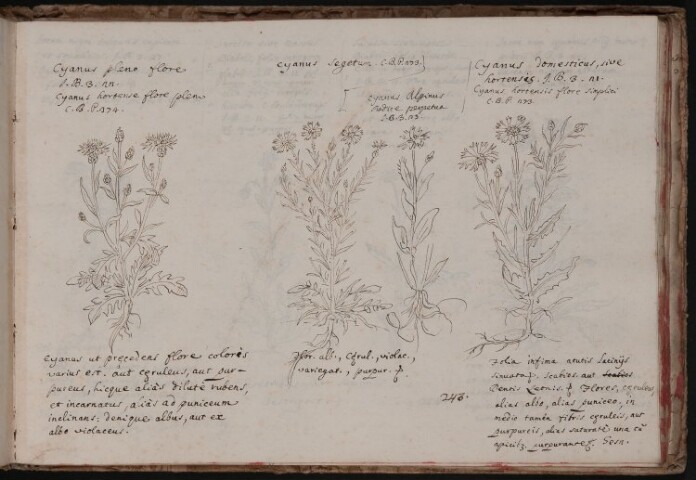 Cyanus pleno flore
J.B. 3. 22.
Cyanus hortense flore pleno
C.B.P. 274.
Cyanus segetum C.B.P. 273
Cyanus Alpinus
radice perpetua
J.B. 3. 23.
Cyanus domesticus, sive
hortensis J.B. 3. 21.
Cyanus hortensis flore simplici
C.B.P. 273
Cyanus ut precedens flore coloris
varius est. aut cęruleus, aut pur-
pureus, hicque aliàs dilutè rubens,
et incarnatus, aliàs ad puniceum
inclinans, denique albus, aut ex
albo violaceus.
Flor. alb., cęrul., violac.,
variegat., purpur.
248.
Folia infima
sinuata
Dentis Flores, cęruleus,
alias albo, alias puniceo, in
medio tamen fibris cęruleis, aut
purpureis, alias saturatè una cū
apicib, purpurant Gesn.